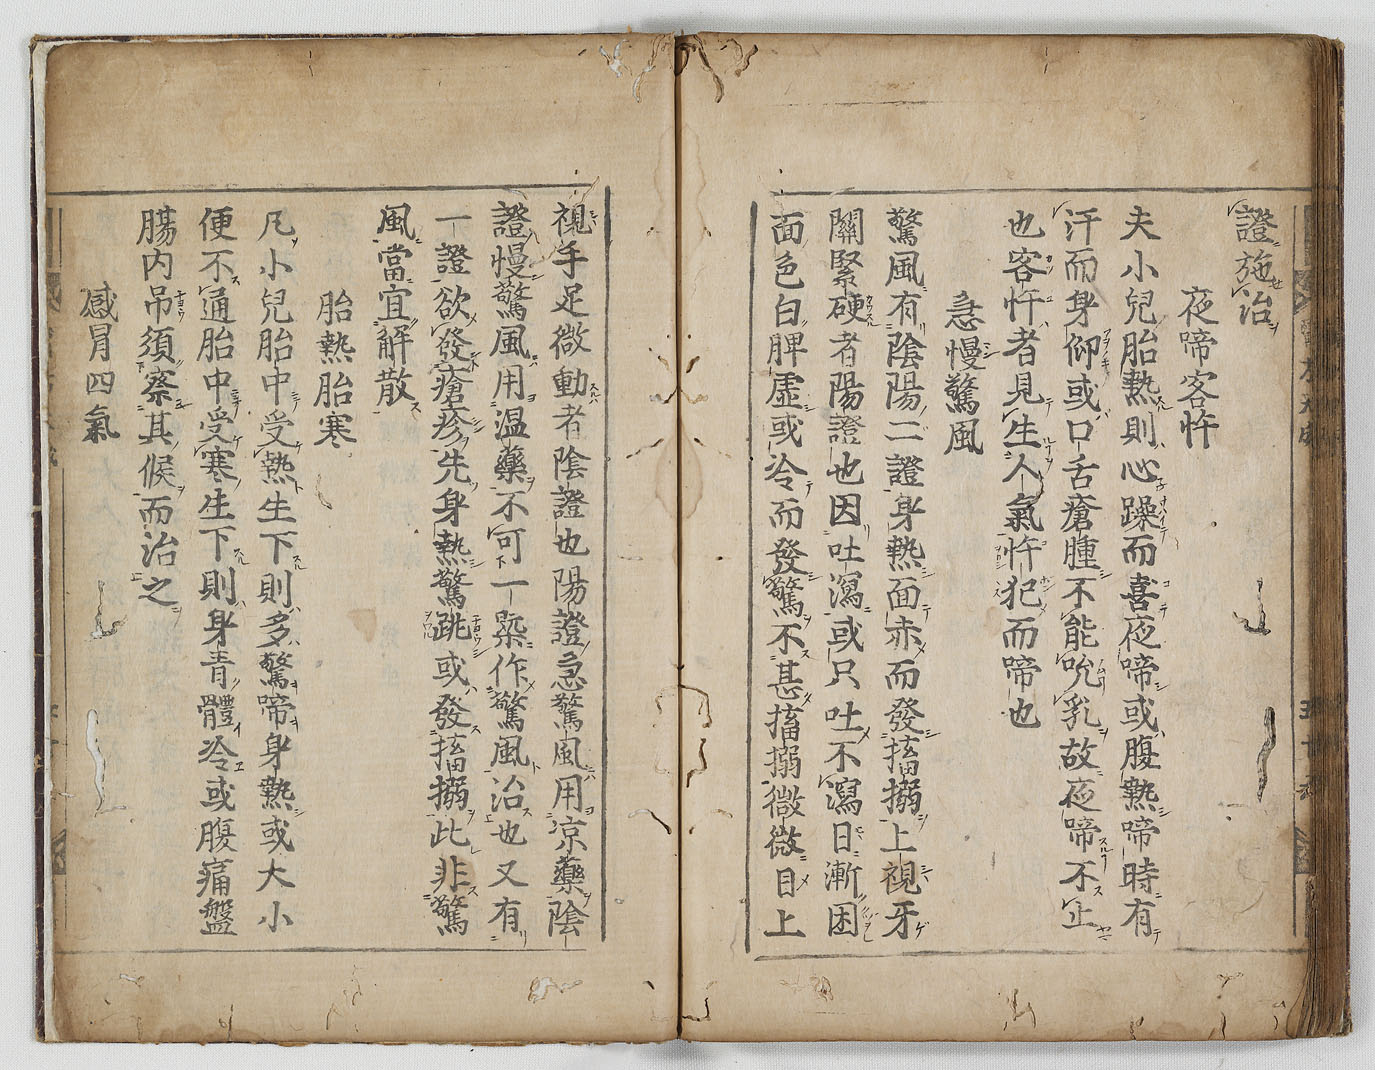 證施治
夜啼客忤
夫小兒胎熱則心躁而喜夜啼或腹熱啼時有
汗而身仰或口舌瘡腫不能吮乳故夜啼不止
也客忤者見生人氣忤犯而啼也
急慢驚風
驚風有陰陽二證身熱面赤而發搐搦上視牙
關緊硬者陽證也因吐瀉或只吐不瀉日漸困
面色白脾虛或冷而發驚不甚搐搦微微目上
視手足微動者陰證也陽證急驚風用凉藥陰
證慢驚風用温藥不可一槩作驚風治也又有
一證欲發瘡疹先身熱驚跳或發搐搦此非驚
風當宜解散
胎熱胎寒
凡小兒胎中受熱生下則多驚啼身熱或大小
便不通胎中受寒生下則身青體冷或腹痛盤
腸内吊須察其候而治之
感冒四氣